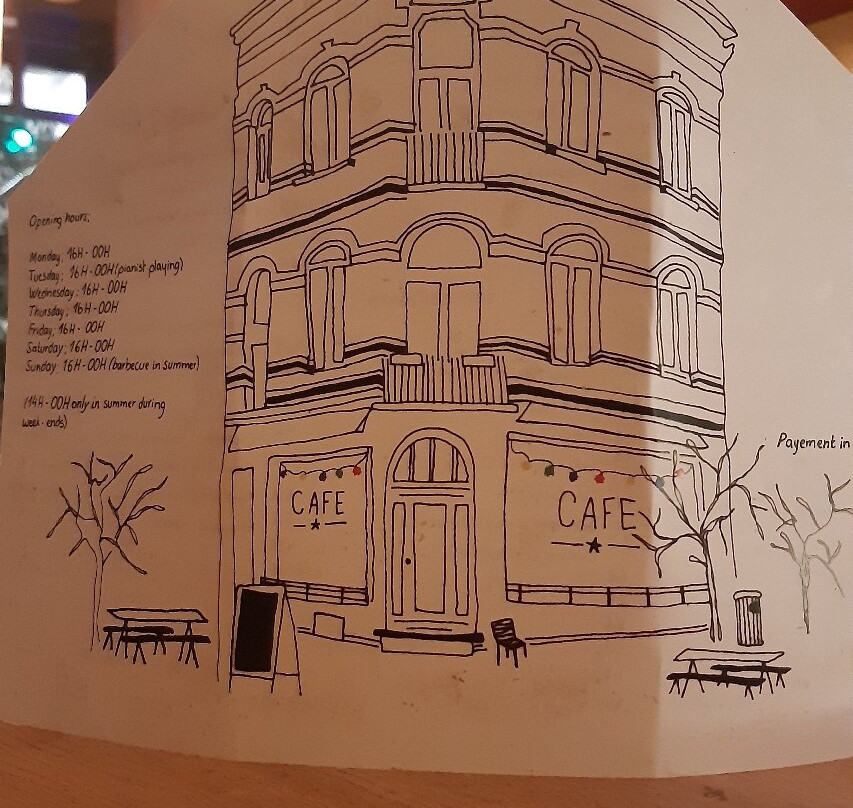 Opening hours;
Monday; 16H - 00H
Tuesday; 16H - 00H (pianist playing)
Wednesday; 16H - 00H
Thursday; 16H - 00H
Friday; 16H - 00H
Saturday; 16H - 00H
Sunday; 16H - 00H (barbecue in summer)
(14H - 00H only in summer during
week-ends)
Payement in
CAFE
CAFE